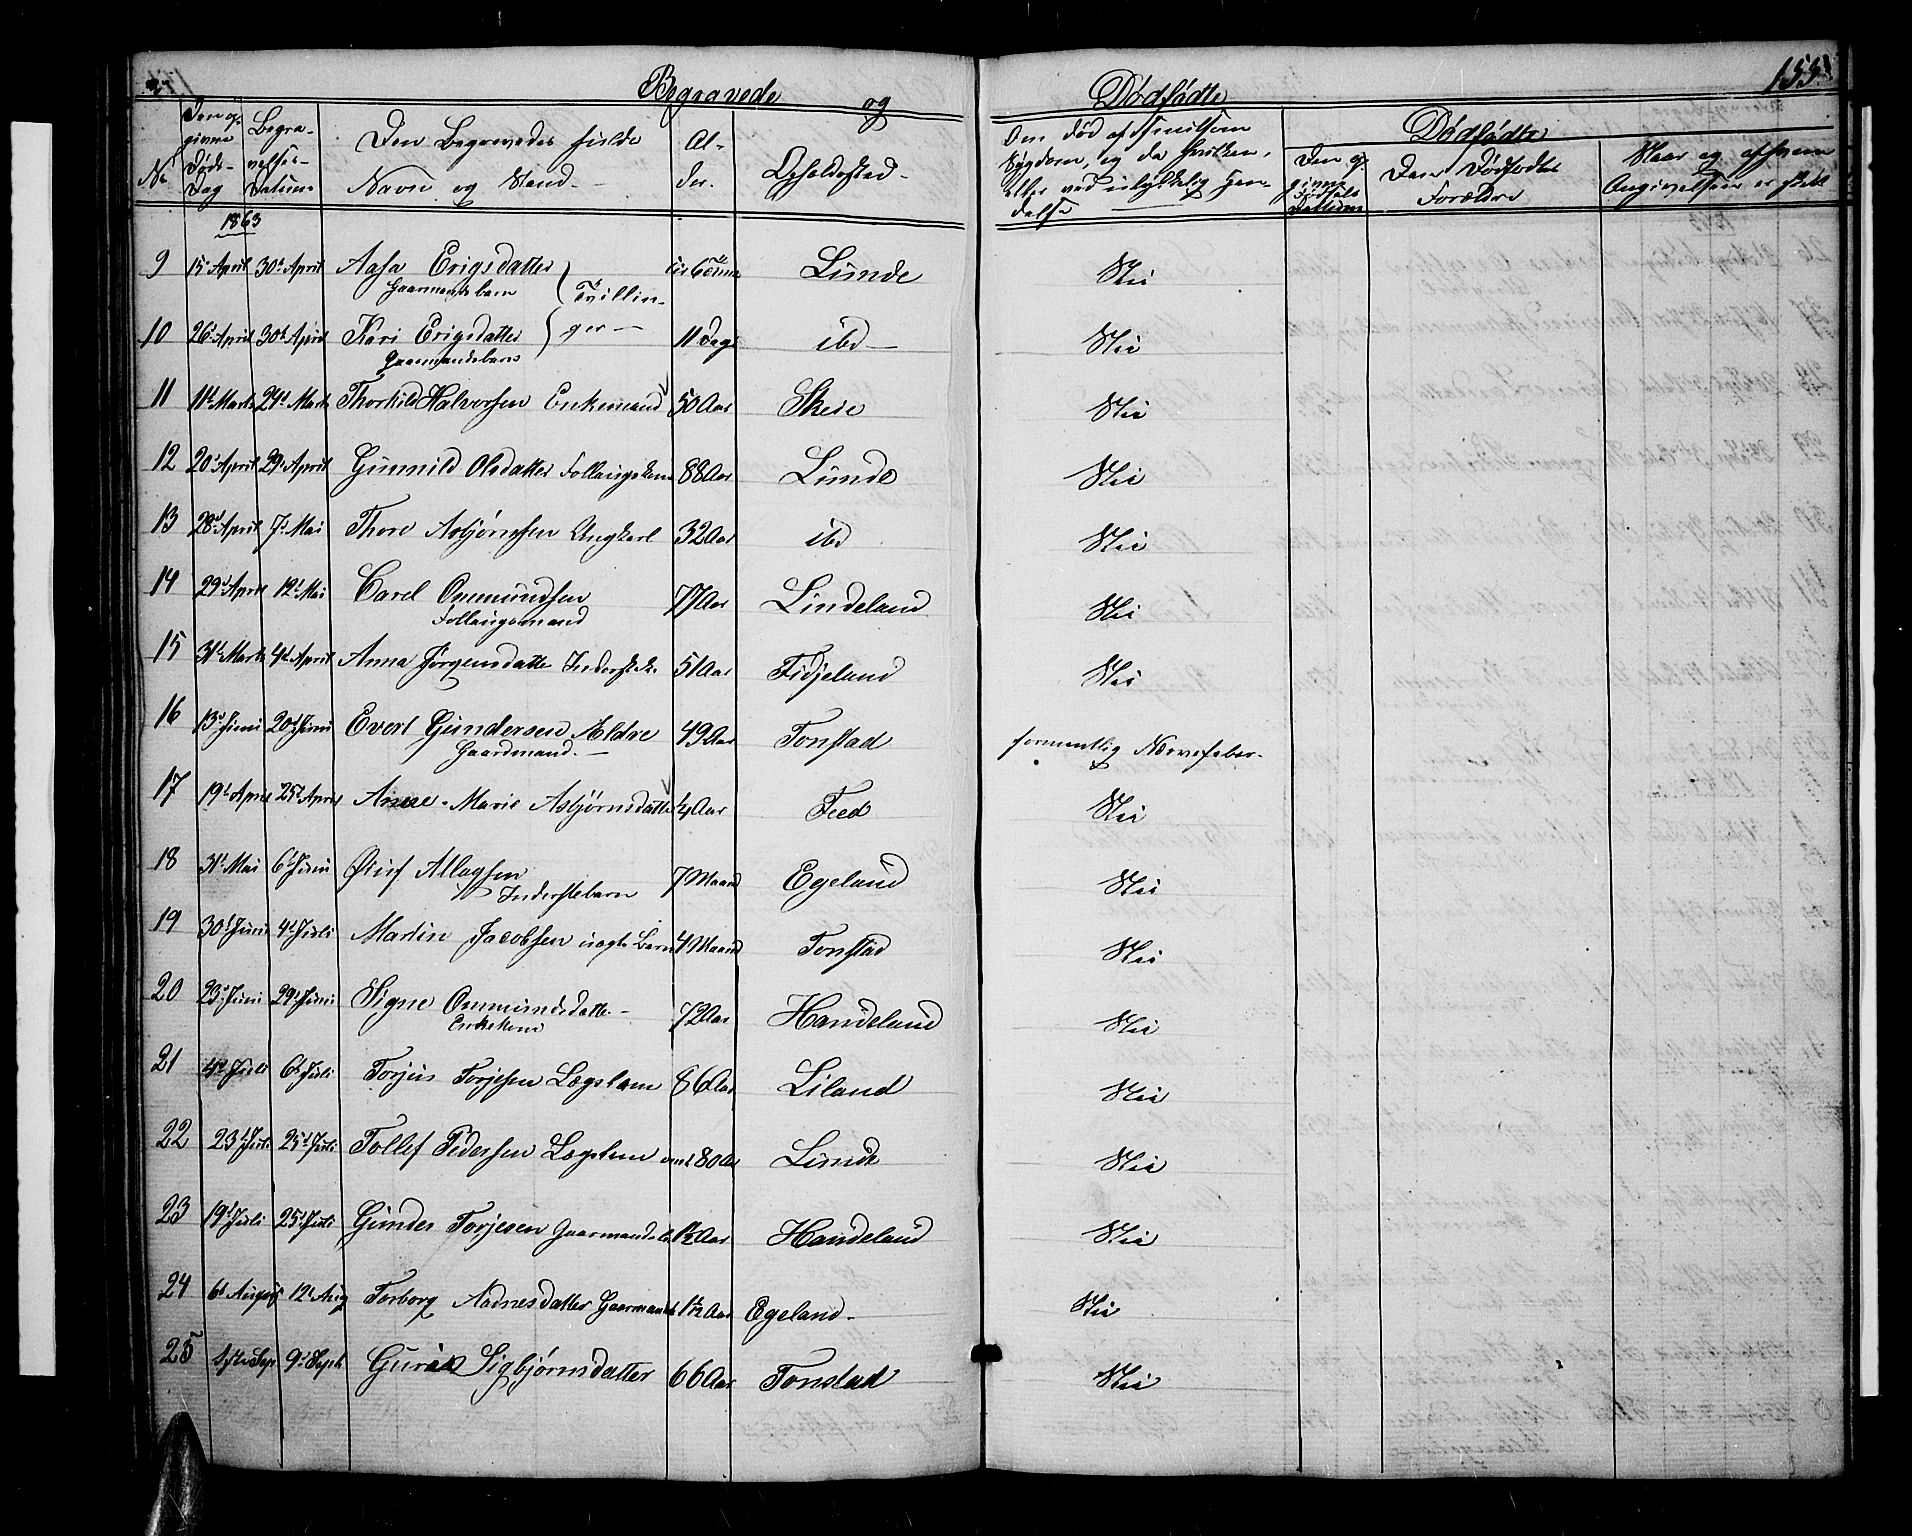 Begravede og Dødfødte 155
No
Den opgivne Døds-Dag
Begravelses-Datum
Den Begravedes fulde Navn og Stand.
Alder.
Opholdssted.
Om død af smitsom Sygdom, og da hvilken, eller ved ulykkelig Hændelse
Dødfødte
Den opgivne Fødsels Datum
Den Dødfødtes Forældre
Naar og af hvem Angivelsen er skeet
1863
9 15de April 30te April Aasa Erigsdatter Gaarmandsbarn } Tvillin- Lunde Nei
10 26de April 30te April Kari Erigsdatter Gaarmandsbarn } ger — 11 Dage ibd — Nei
11 11te Marts 24de Marts Thorkild Halvorsen Enkemand 50 Aar Skeie Nei
12 20de April 29de April Gunnild Olsdatter Follaugskone 88 Aar Lunde Nei
13 28de April 7de Mai Thore Asbjørnsen Ungkarl 32 Aar ibd Nei
14 29de April 12te Mai Carel Ommundsen Follaugsmand 77 Aar Lindeland Nei
15 31te Marts 4de April Anna Jørgensdatter Inderstek. 51 Aar Fidjeland Nei
16 13de Juni 20de Juni Evert Gundersen Ældre Gaardmand. — 49 Aar Tonstad formentlig Nervefeber.
17 19de April 25de April Anne-Marie Asbjørnsdatter ¼ Aar Feed Nei
18 31te Mai 6te Juni Ollagsen Inderstebarn 7 Maaned Egeland Nei
19 30te Juni 4de Juli Martin Jacobsen uægte Barn 4 Maaned Tonstad Nei
20 23de Juni 29de Juni Signe Ommundsdatter — Enkekone 72 Aar Haudeland Nei
21 4de Juli 6te Juli Torjus Torjesen Lægslem 86 Aar Liland Nei
22 23de Juli 25de Juli Tollef Pedersen Lægslem omt 80 Aar Lunde Nei
23 19de Juli 25de Juli Gunder Torjesen Gaarmandsb. 1½ Aar Haudeland Nei
24 6te August 12te Aug Torborg Aadnesdatter Gaarmandsb 1½ Aar Egeland — Nei
25 1ste Sep 9de Septb Guri Sigbjørnsdatter 66 Aar Tonstad Nei